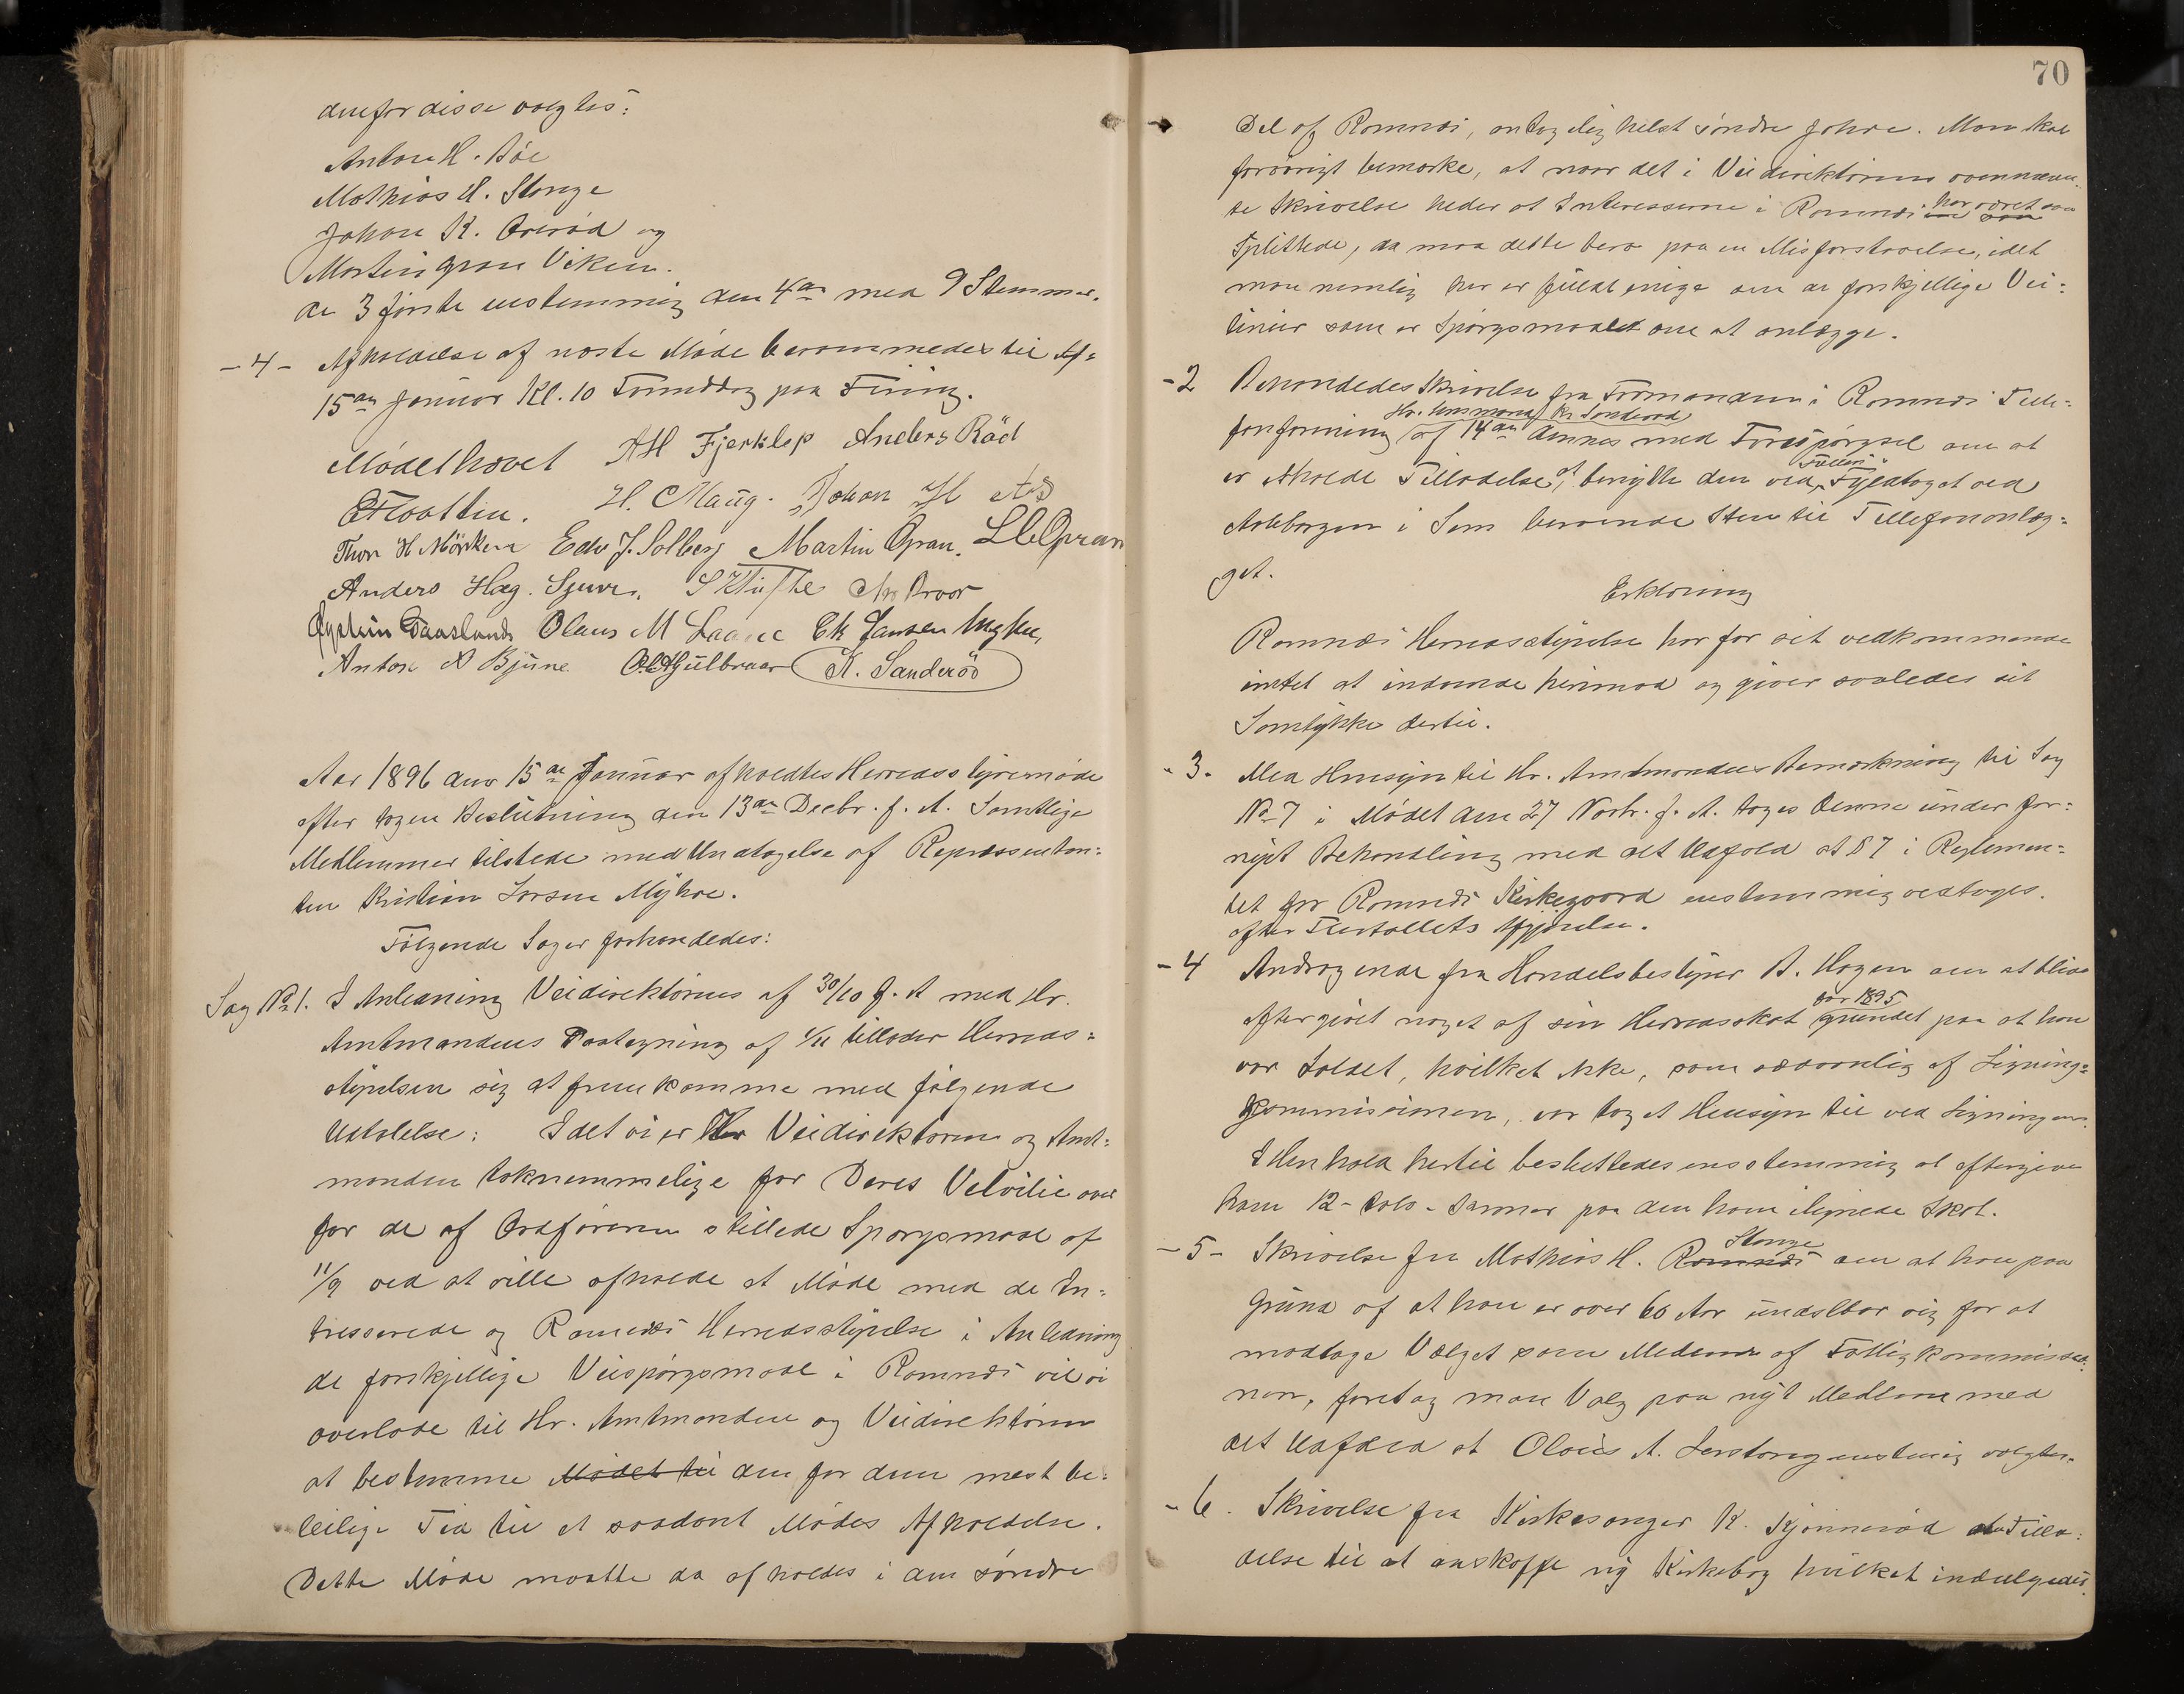 denfor disse valgtes:
Anton H. Bøe
Mathias H. Stange
Johan K. Ørerød og
Martin Gran Viken.
de 3 første enstemmig den 4de med 9 Stemmer.
- 4 - Afholdelse af næste Møde berammedes til
15de Januar Kl. 10 Formiddag paa Fining.
Mødet hævet AH Fjerklep Anders Rød
H. Maug. Johan H Aas
Thor H Mørken Edv J. Solberg Martin Gran. LCGran
Anders Hag. Sjuve.
Øystein Daasland Olaus M Laane Ek Jansen Myhre,
Anton A Bjune K. Sanderød
Aar 1896 den 15de Januar afholdtes Herredsstyremøde
efter tagen Beslutning den 13de Decbr. f. A. Samtlige
Medlemmer tilstede med Undtagelse af Repræsentan=
ten Kristian Larsen Myhre.
Følgende Sager forhandledes:
Sag No 1. I Anledning Veidirektørens af 30/10 f. A med Hr.
Amtmandens Paategning af 1/11 tillader Herreds=
styrelsen sig at fremkomme med følgende
Udtalelse: Idet vi er Hr Veidirektøren og Amt=
manden taknemmelige for Deres Velvilie over
for de af Ordføreren stillede Spørgsmaal af
11/9 ved at ville afholde et Møde med de In=
tresserede og Ramnæs Herredsstyrelse i Anledning
de forskjellige Veispørgsmaal i Ramnæs vil vi
overlade til Hr. Amtmanden og Veidirektøren
at bestemme Mødet til den for dem mest be=
leilige Tid til et saadant Mødes Afholdelse.
Dette Møde maatte da afholdes i den søndre
70
Del af Ramnæs, antagelig helst søndre Johre. Man skal
forøvrigt bemærke, at naar det i Veidirektørens ovennævn=
te Skrivelse heder at Interesserne i Ramnæs har været saa
splittede, da maa dette bero paa en Misforstaaelse, idet
man nemlig her er fuldt enige om de forskjellige Vei=
linier som er Spørgsmaalet om at anlægge.
- 2 Behandledes Skrivelse fra Formanden i Ramnæs Tele=
Hr. Lensmand Kr Sanderød
fonforening af 14de dennes med Forespørgsel om at
erholde Tilladelse at benytte den ved Fyldtaget ved
Askeborgen i Sem beroende Sten til Tellefonanlæg=
get.
Erklæring
Ramnæs Herredsstyrelse har for sit vedkommende
intet at indvende herimod og giver saaledes sit
Samtykke dertil.
- 3. Med Hensyn til Hr. Amtmandens Bemærkning til Sag
No 7 i Mødet den 27 Novbr. f. A. toges denne under for=
nyet Behandling med det Udfald at § 7 i Reglemen=
tet for Ramnæs Kirkegaard enstemmig vedtoges.
efter Flertallets Afgjørelse.
- 4 Andragende fra Handelsbestyrer A. Hagen om at blive
for 1895
eftergivet noget af sin Herredsskat grundet paa at han
var Soldat, hvilket ikke, som sædvanlig af Ligning=
kommissionen, var taget Hensyn til ved Ligningen.
I Henhold hertil besluttedes enstemmig at eftergive
ham 12 - tolv - Kroner paa den ham ilignede Skat.
Stange
- 5 - Skrivelse fra Mathias H. Ramnæs om at han paa
Grund af at han er over 60 Aar undslaar sig for at
modtage Valget som Medlem af Fattigkommissio=
nen, foretog man Valg paa nyt Medlem med
det Udfald at Olaus A. Lerstang enstemig valgtes.
- 6. Skrivelse fra Kirkesanger K. Kjønnerød om Tilla=
delse til at anskaffe ny Kirkebog hvilket indvilgedes.